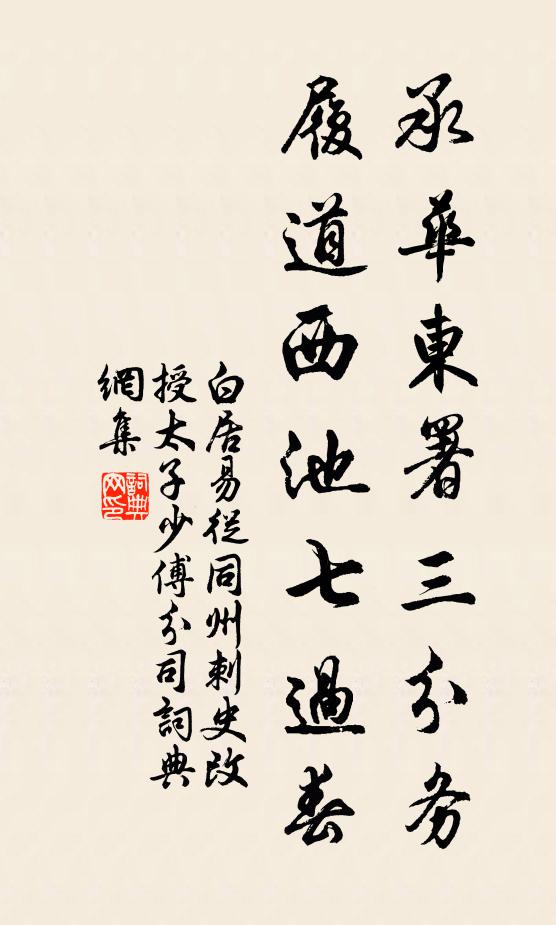 承華東署三分务
履道西池七過春
白居易從同州刺史改
授太子少傅分司詞典
網集
詞典
网印